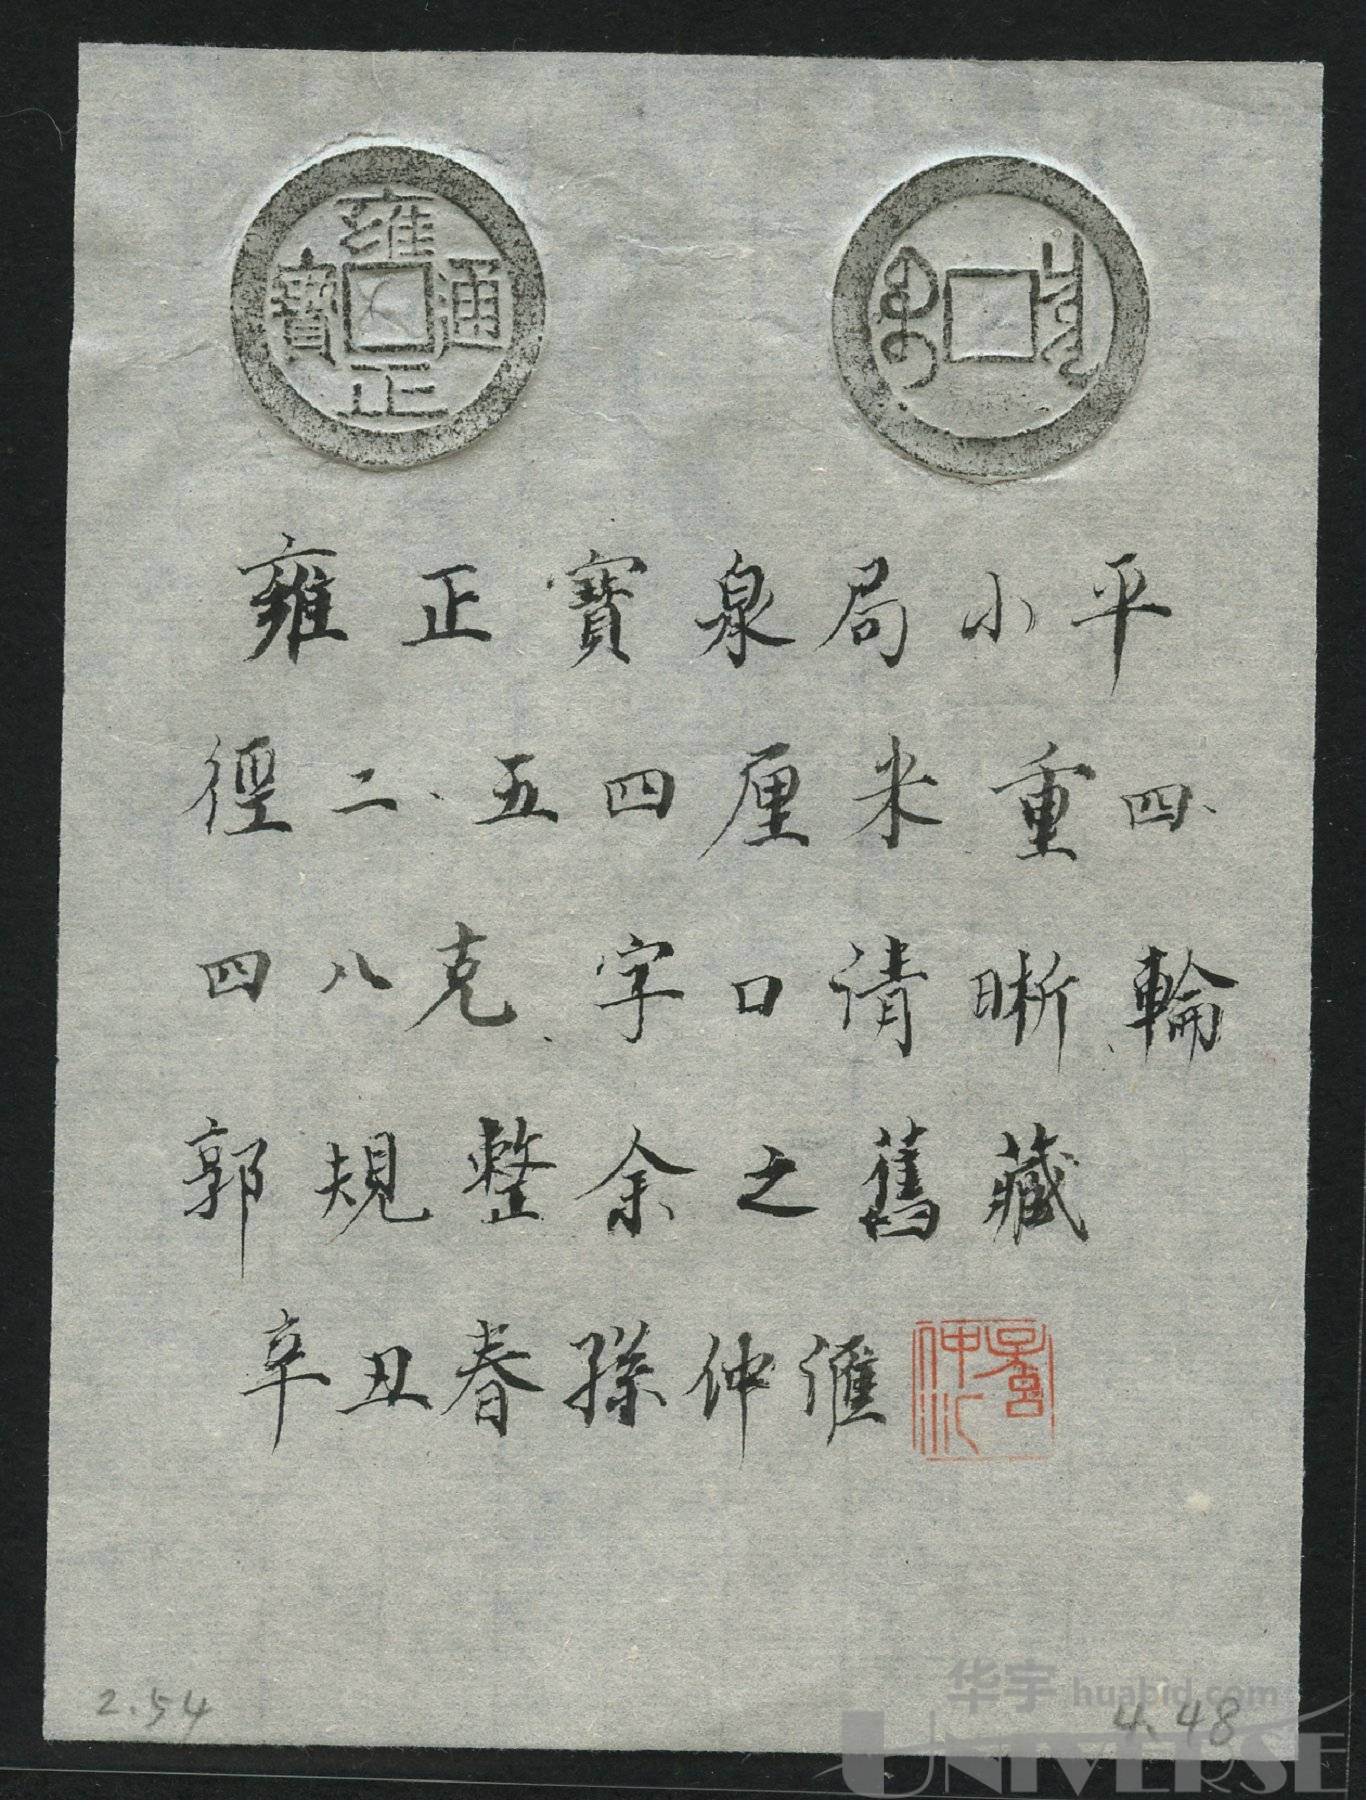 雍正通寶
雍正寶泉局小平
徑二、五四厘米重四、
四八克、字口清晰、輪
郭規整余之舊藏
辛丑春孫仲匯
2.54
4.48
华宇 huabid.com
UNIVERSE